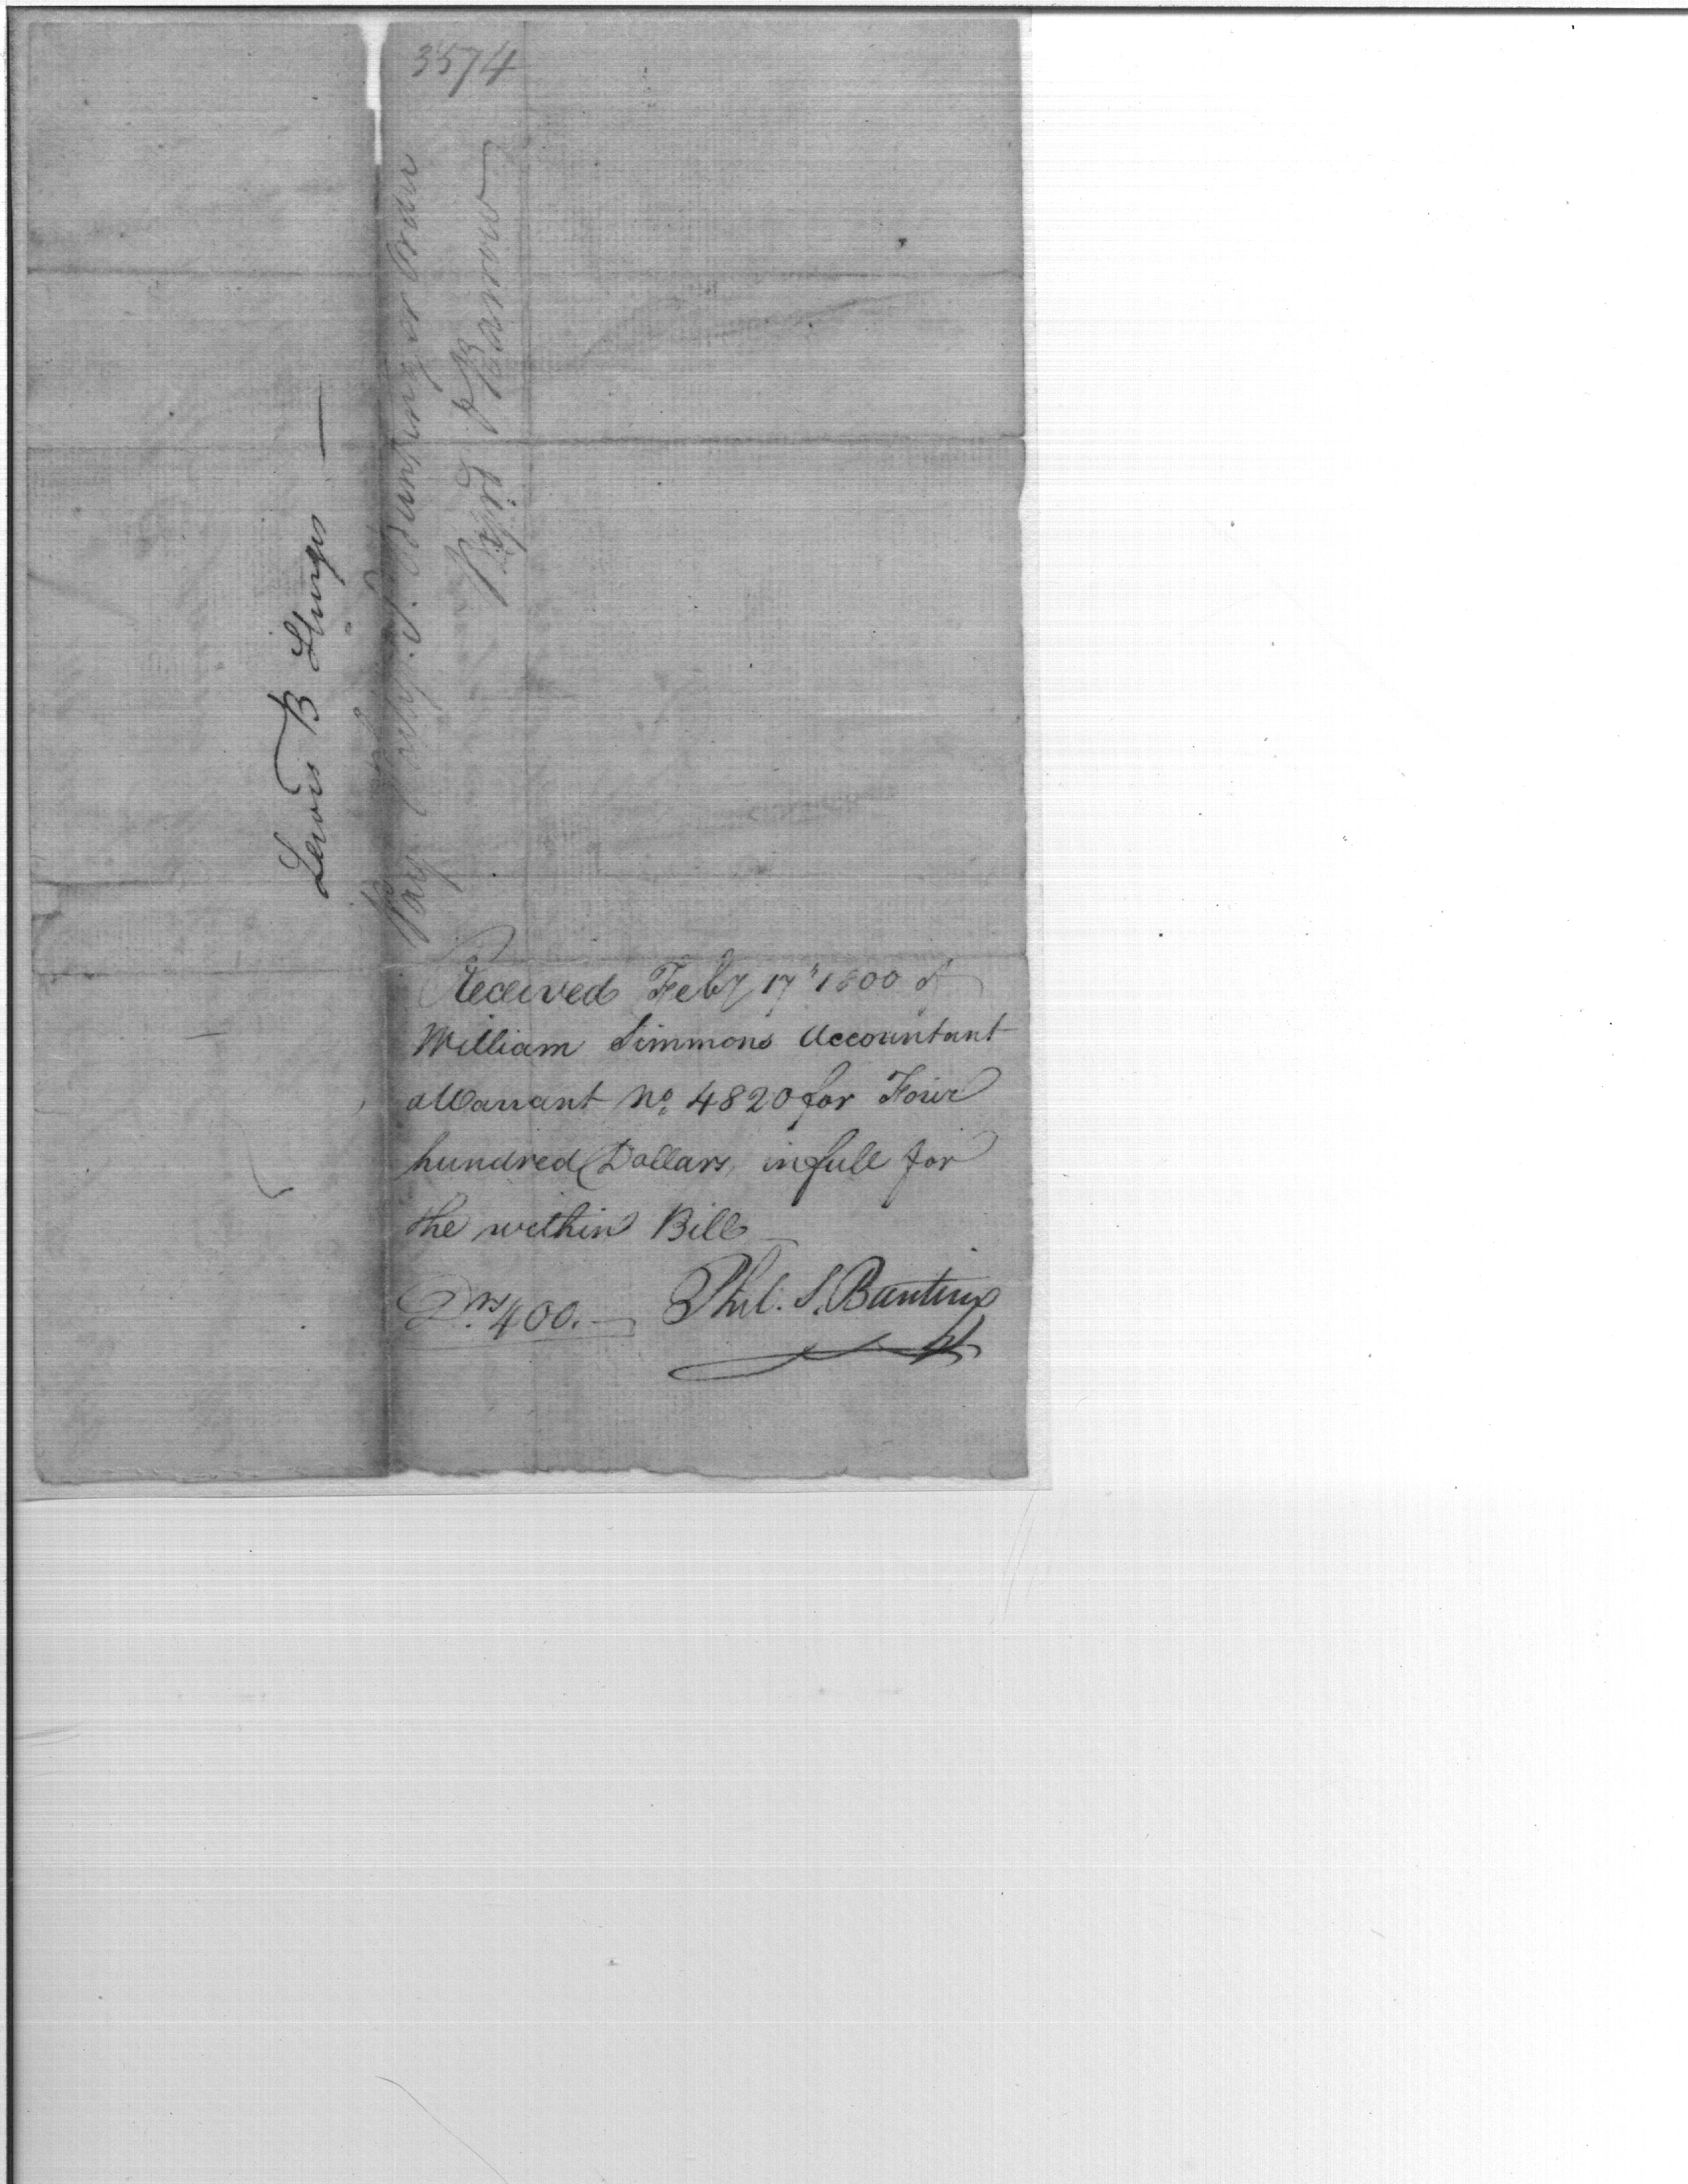 3574
Lewis B Sturges
Pay Philip S. Bunting or Order
Rob.t Barrow
Received Feby 17th 1800 of
William Simmons Accountant
a Warrant No. 4820 for Four
hundred Dollars, in full for
the within Bill
Drs 400.
Phil. S. Bunting